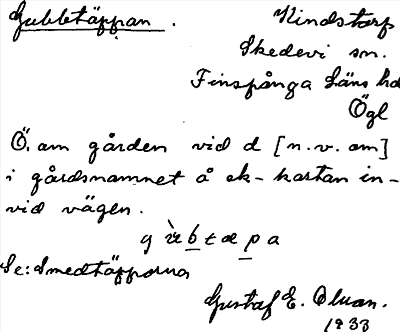 Gubbtäppan. Kindstorp
Skedevi sn.
Finspånga Läns hd
Ögl
Ö. om gården vid d [n.v. om]
i gårdsnamnet å ek-kartan in-
vid vägen.
Se: Smedtäpporna
Gustaf E. Olsson.
1933